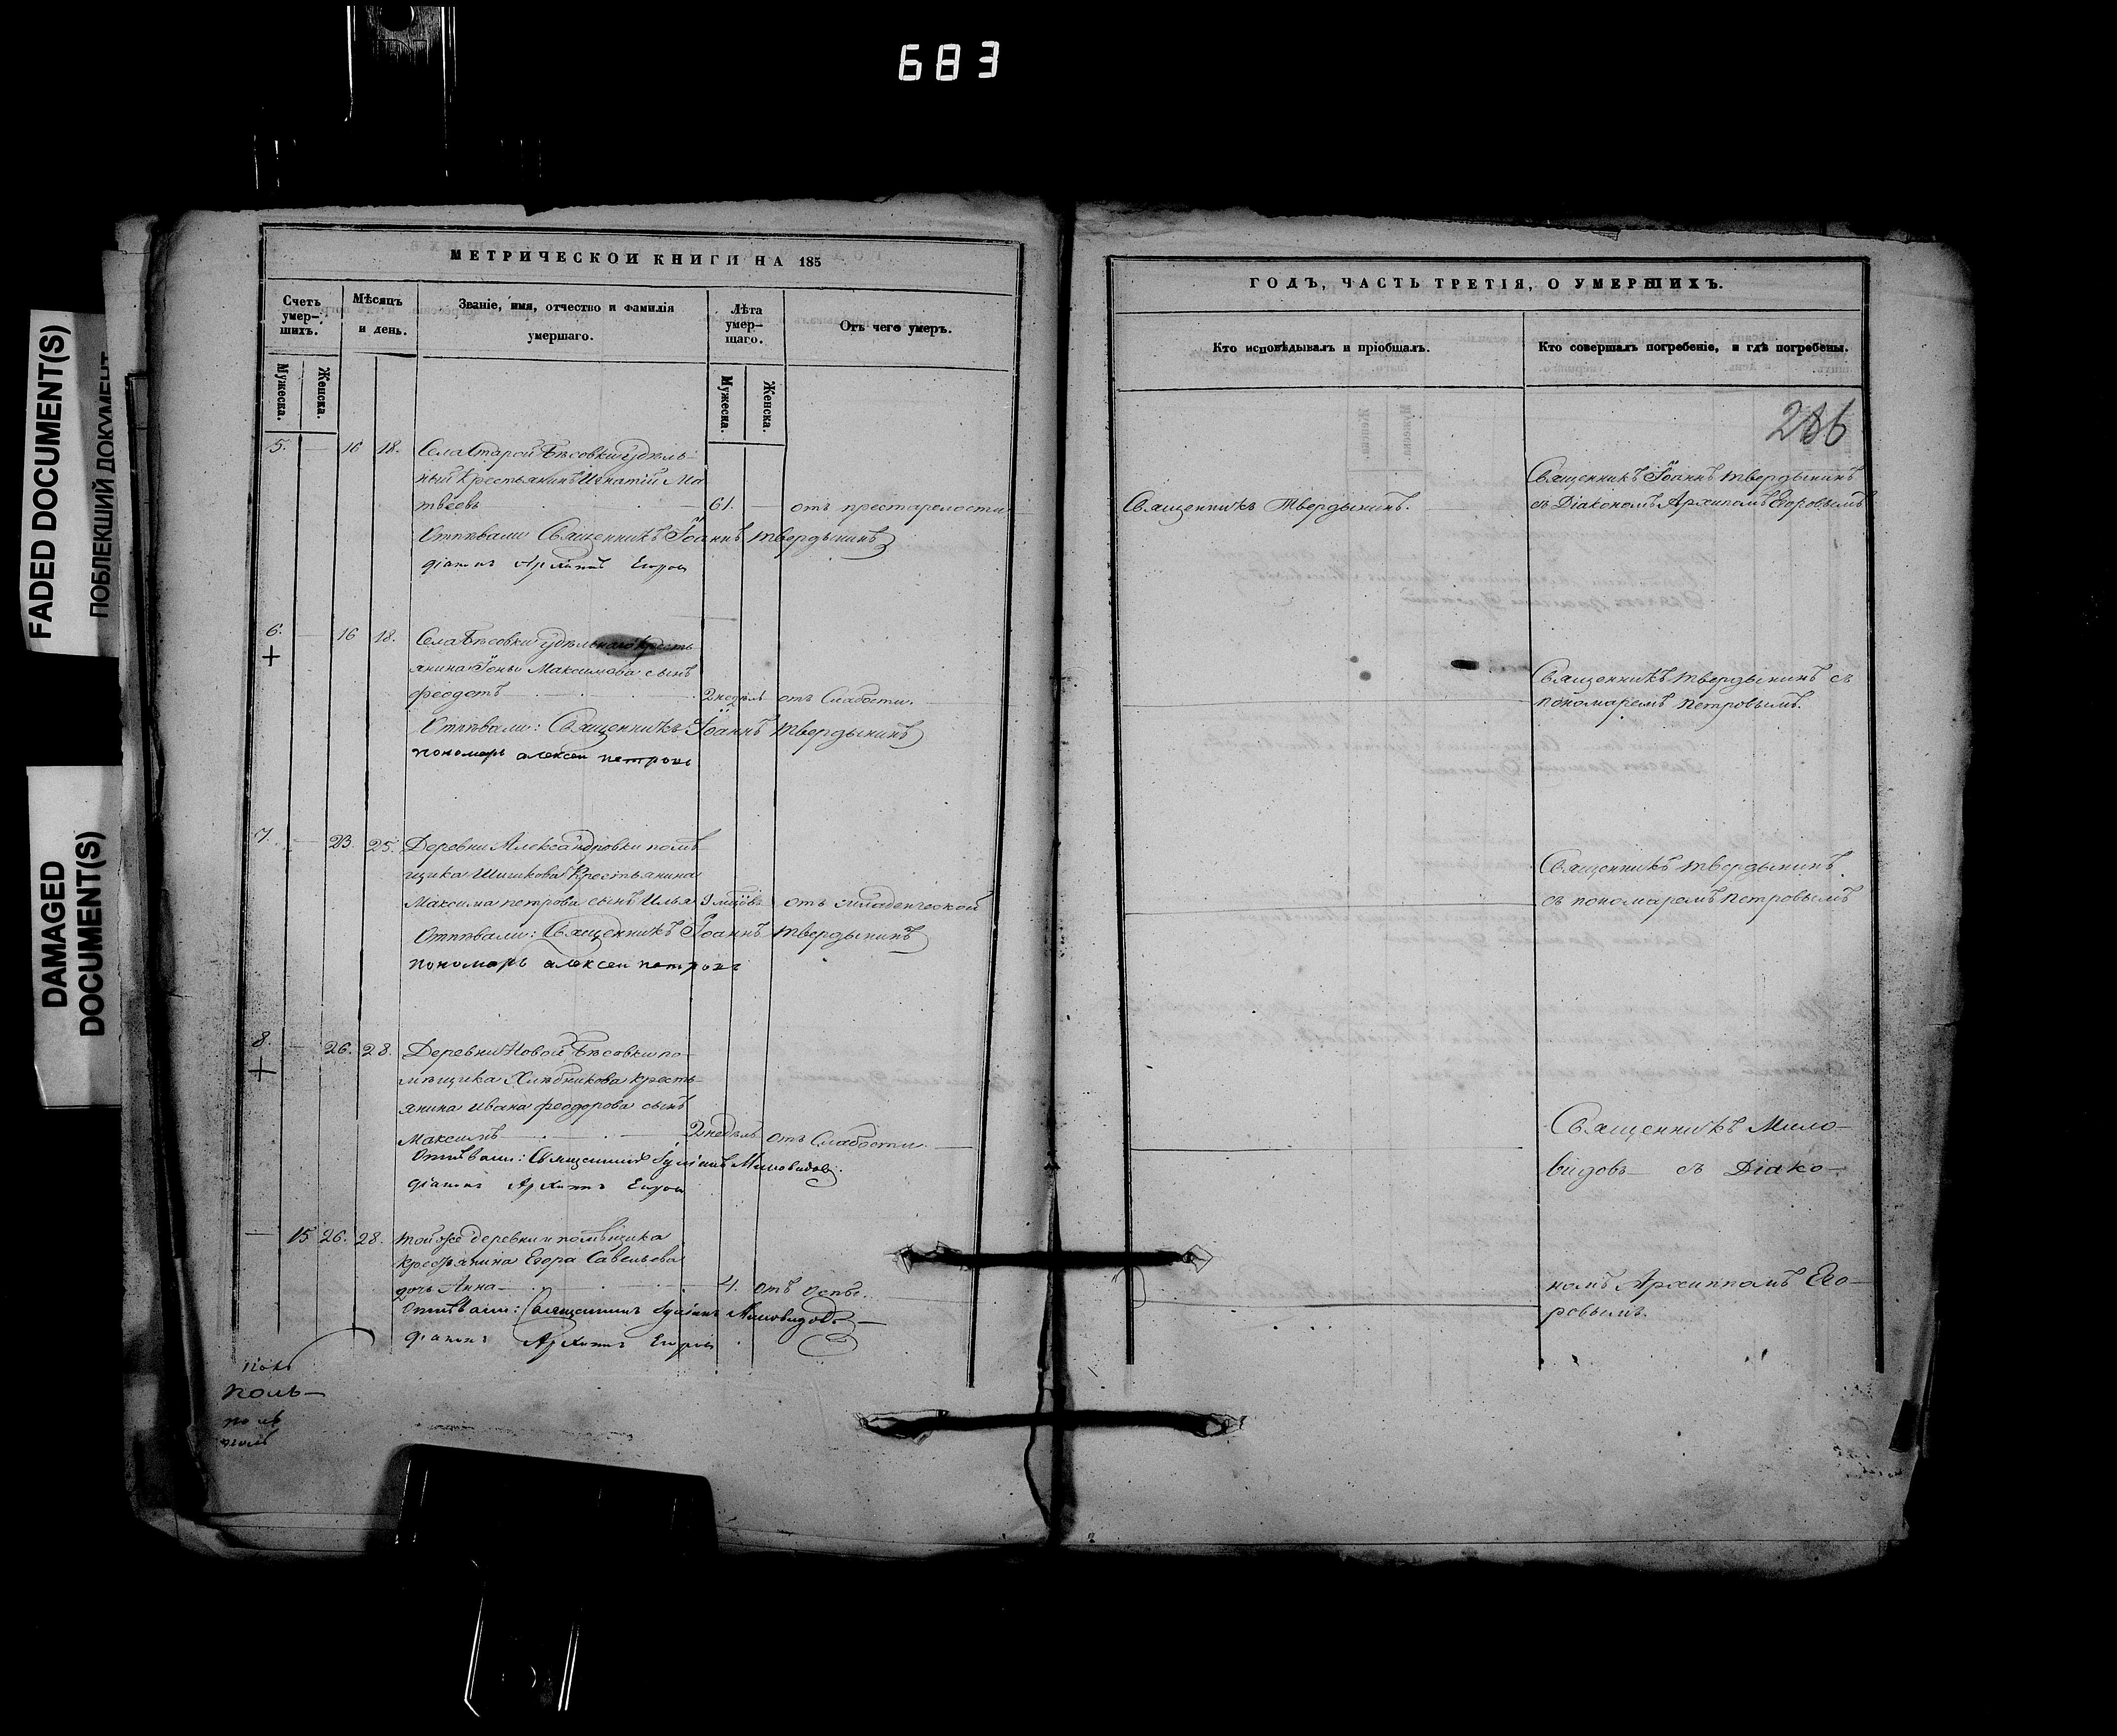 683
FADED DOCUMENT(S)
ПОБЛЕКШИЙ ДОКУМЕНТ
DAMAGED
DOCUMENT(S)
МЕТРИЧЕСКОЙ КНИГИ НА 185
Счетъ умер-шихъ.
Мѣсяцъ и день.
Званіе, имя, отчество и фамилія умершаго.
Лѣта умер-шаго.
Отъ чего умеръ.
Мужеска.
Женска.
Мужеска.
Женска.
5. — 16 18. Села Старой Бѣсовки удѣль-
ный крестьянинъ Игнатій Ма
твѣевъ 61. — отъ престарелости
Отпѣвали Священникъ Іоаннъ Твердынинъ
діаконъ Архипъ Егоровъ
6. — 16 18. Села Бѣсовки удѣльнаго кресть
янина Іоны Максимова сынъ
Феодотъ 2 недѣль отъ Слабости.
Отпѣвали: Священникъ Іоаннъ Твердынинъ
пономарь алексей петровъ
7. — 23. 25. Деревни Александровки помѣ
щика Шишкова крестьянина
Максима петрова сынъ Илья 9 мцовъ отъ младенческой
Отпѣвали: Священникъ Іоаннъ Твердынинъ
пономарь алексей петровъ
8. — 26. 28. Деревни Новой Бѣсовки по-
мѣщика Хлѣбникова кресть-
янина Ивана Феодорова сынъ
Максимъ 2 недѣль отъ Слабости.
Отпѣвали: Священникъ Миловидовъ.
діаконъ Архипъ Егоровъ
— 15 26. 28. той же деревни и помѣщика
крестьянина Егора Савельева
дочь Анна 4. отъ оспы.
Отпѣвали: Священникъ Миловидовъ
діаконъ Архипъ Егоровъ
поль—
ГОДЪ, ЧАСТЬ ТРЕТІЯ, О УМЕРШИХЪ.
Кто исповѣдывалъ и пріобщалъ.
Кто совершалъ погребеніе, и гдѣ погребены.
Священникъ Іоаннъ Твердынинъ
Священникъ Твердынинъ. съ Діакономъ Архипомъ Егоровымъ
Священникъ Твердынинъ съ
пономаремъ Петровымъ.
Священникъ Твердынинъ
съ пономаремъ Петровымъ
Священникъ Мило-
видовъ съ Діако-
номъ Архиппомъ Его-
ровымъ.